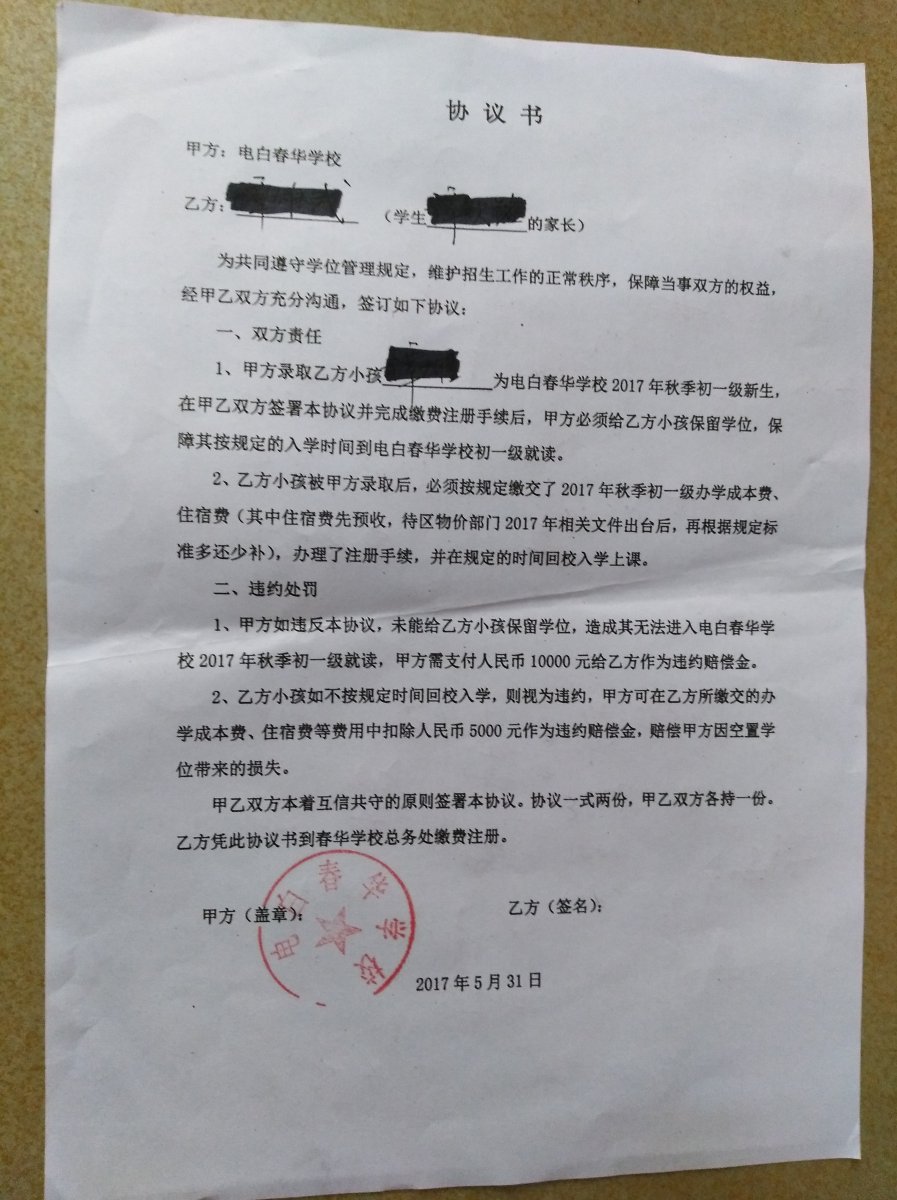 协议书
甲方：电白春华学校
乙方： （学生 的家长）
为共同遵守学位管理规定，维护招生工作的正常秩序，保障当事双方的权益，
经甲乙双方充分沟通，签订如下协议：
一、双方责任
1、甲方录取乙方小孩 为电白春华学校 2017 年秋季初一级新生，
在甲乙双方签署本协议并完成缴费注册手续后，甲方必须给乙方小孩保留学位，保
障其按规定的入学时间到电白春华学校初一级就读。
2、乙方小孩被甲方录取后，必须按规定缴交了 2017 年秋季初一级办学成本费、
住宿费（其中住宿费先预收，待区物价部门 2017 年相关文件出台后，再根据规定标
准多还少补），办理了注册手续，并在规定的时间回校入学上课。
二、违约处罚
1、甲方如违反本协议，未能给乙方小孩保留学位，造成其无法进入电白春华学
校 2017 年秋季初一级就读，甲方需支付人民币 10000 元给乙方作为违约赔偿金。
2、乙方小孩如不按规定时间回校入学，则视为违约，甲方可在乙方所缴交的办
学成本费、住宿费等费用中扣除人民币 5000 元作为违约赔偿金，赔偿甲方因空置学
位带来的损失。
甲乙双方本着互信共守的原则签署本协议。协议一式两份，甲乙双方各持一份。
乙方凭此协议书到春华学校总务处缴费注册。
甲方（盖章）： 乙方（签名）：
电白春华学校
2017 年 5 月 31 日